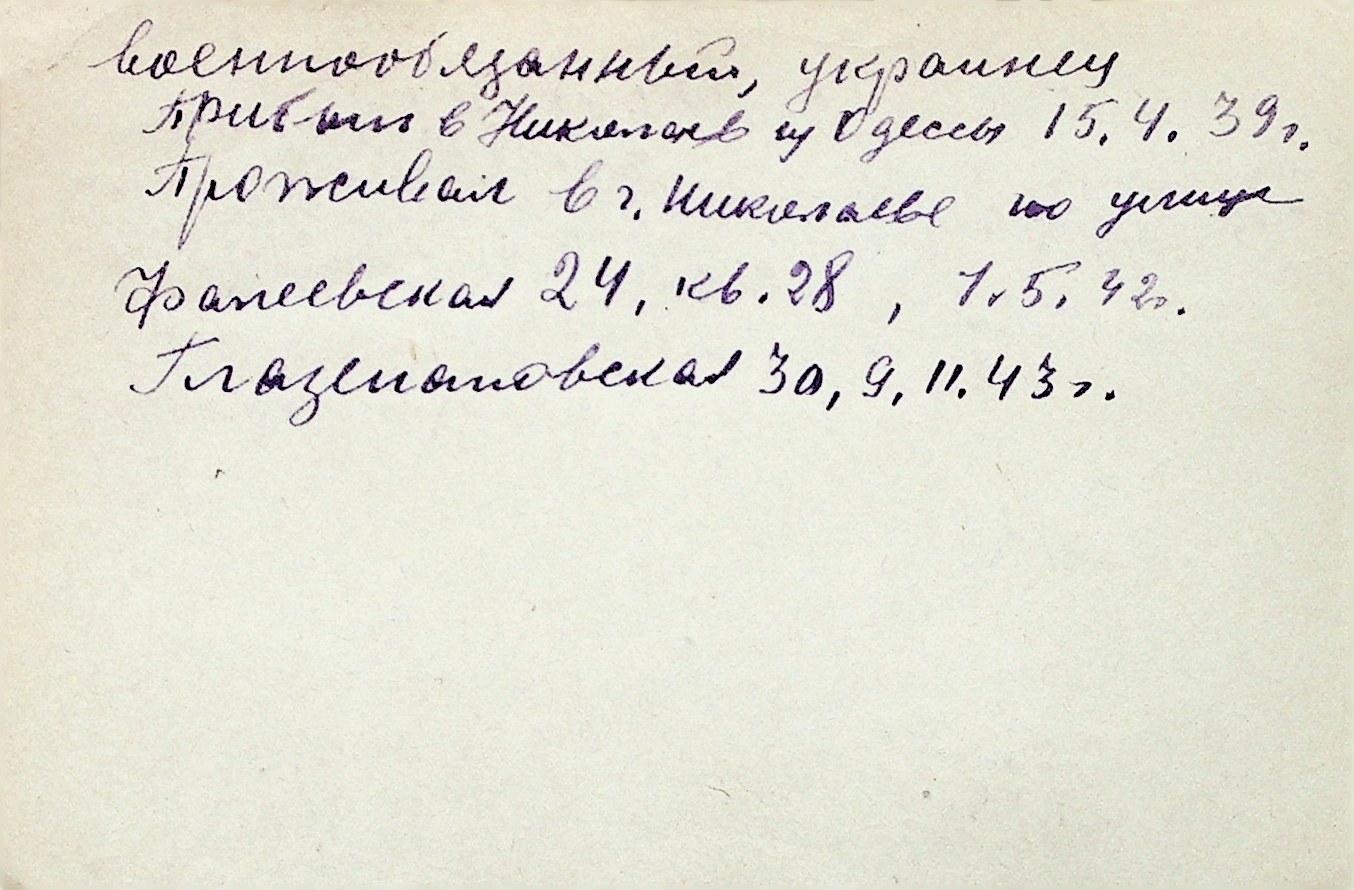 военнообязанный, украинец
Прибыл в Николаев из Одессы 15.4.39г.
Проживал в г. Николаеве по улице
Фалеевская 24, кв. 28, 1.5.42г.
Глазенаповская 30, 9.11.43г.